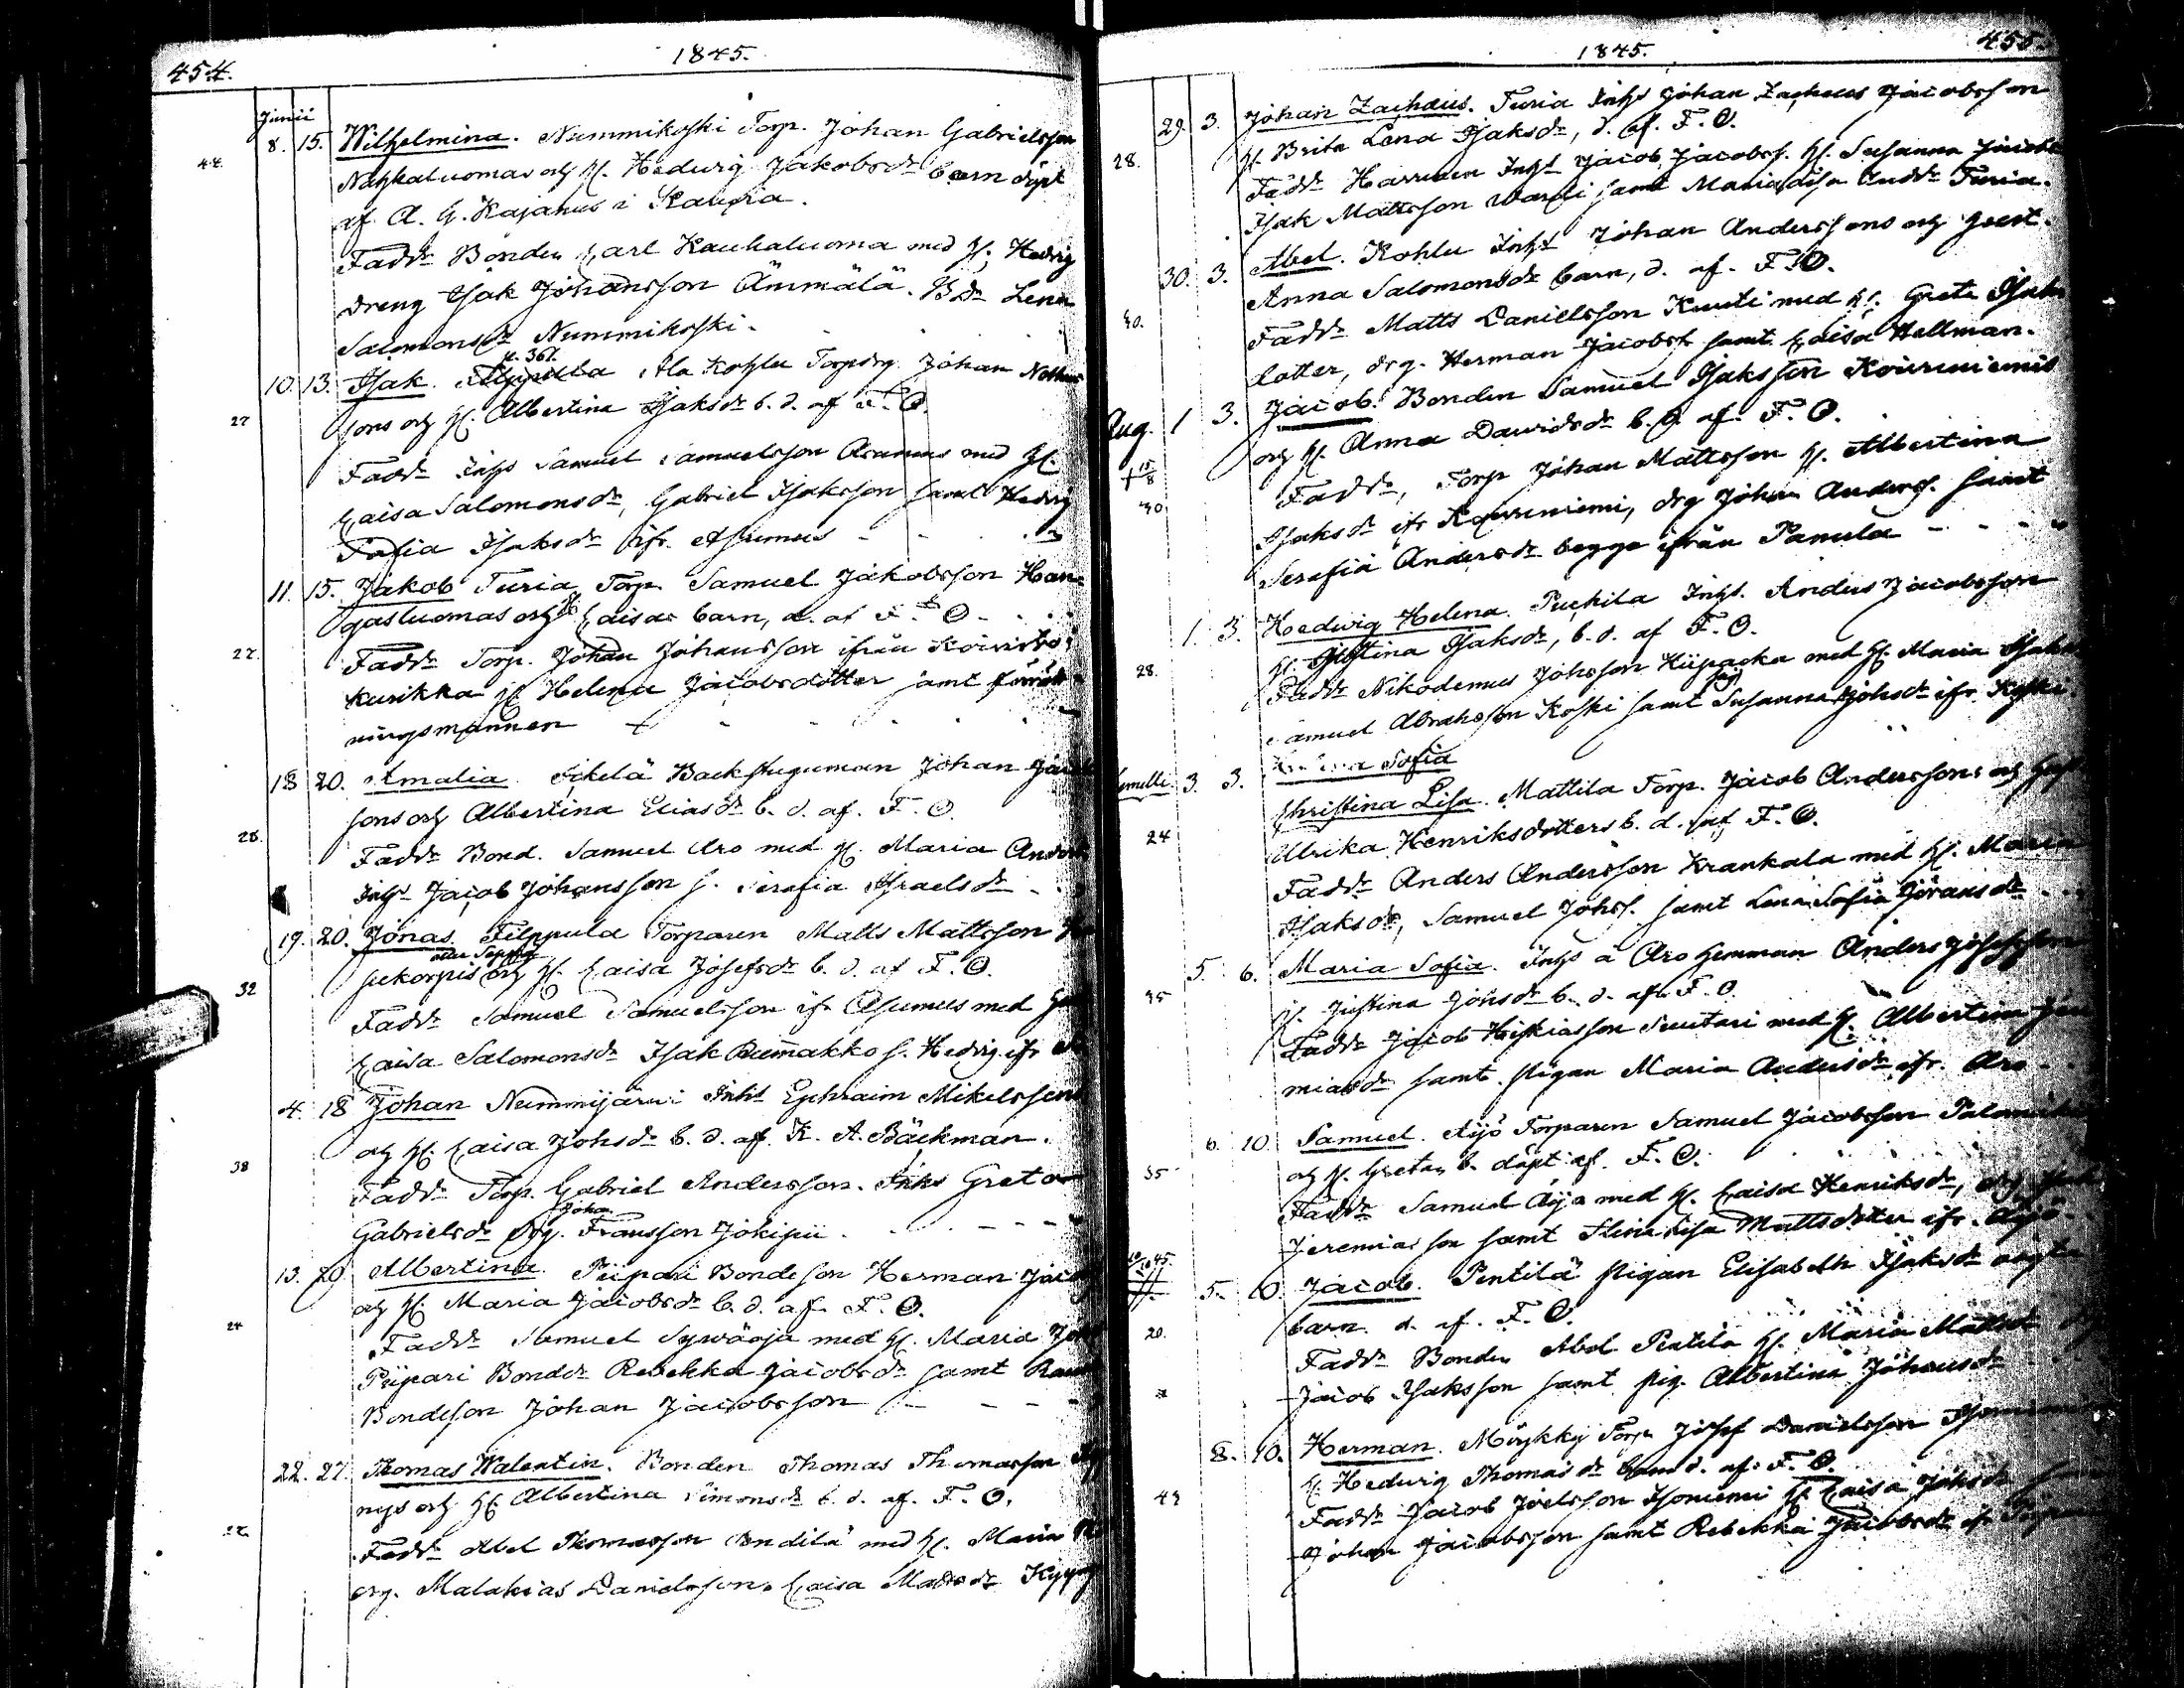 454.
1845.
Junii
44. 8. 15. Wilhelmina. Nummikoski Torp. Johan Gabrielsson
Nahkaluomas och H. Hedwig Jakobsdr barn döpt
af A. G. Kajanus i Kauha.
Faddr Bonden Carl Kauhaluoma med H. Hedvig
dreng Isak Johansson Ämmälä. B.dr Lena
Salomonsdr Nummikoski.
p. 367.
10. 13. Isak. Ala Kohlu Torpdrg. Johan
27 sons och H. Albertina Isaksdr b. d. af F. O.
Faddr Inhs Samuel Samuelsson Asumus med H.
Caisa Salomonsdr, Gabriel Isaksson samt Hedvig
Sofia Isaksdr ifr. Asumus
11. 15. Jakob Turia Torp. Samuel Jakobsson Han=
gasluomas och H. Caisas barn, d. af F. O.
27. Faddr Torp. Johan Johansson ifrån Koivisto
Kurikka H. Helena Jacobsdotter samt förrätt=
ningsmannen
18 20. Amalia. Ikelä Backstuguman Johan
sons och Albertina Eliasdr b. d. af. F. O.
28. Faddr Bond. Samuel Aro med H. Maria
Inhs Jacob Johansson s. Serafia Israelsdr
19. 20. Jonas. Filppula Torparen Matts Mattsson
eller Seppä
sukorpis och H. Caisa Josefsdr b. d. af F. O.
32 Faddr Samuel Samuelsson ifr Asumus med
Caisa Salomonsdr Isak Rummakko s. Hedvig ifr
4. 18 Johan Nummijärvi Inhs Ephraim Mikelssons
och H. Caisa Johsdr b. d. af K. A. Bäckman.
38 Faddr Torp. Gabriel Andersson. Inhs Greta
Johan
Gabrielsdr drg. Fransson Jokipii
13. 20 Albertina. Piipari Bondeson Herman
och H. Maria Jacobsdr b. d. af F. O.
24 Faddr Samuel Sywäoja med H. Maria
Piipari Bondedr Rebekka Jacobsdr samt
Bondeson Johan Jacobsson
22. 27. Thomas Walentin. Bonden Thomas Thomasson
nys och H. Albertina Simonsdr b. d. af. F. O.
22. Faddr Abel Thomasson Ondila med H. Maria
drg. Malakias Danielsson, Caisa Mattsdr Kyyny
1845.
455.
29. 3. Johan Zachæus. Turia Inhs Johan Zacheus Jacobsson
H. Brita Lena Isaksdr, d. af. F. O.
28. Faddr Harrunen Inhs Jacob Jacobss. H. Susanna
Isak Mattsson Warpi samt Maria Lisa Andsdr Turia.
30. 3. Abel. Kohlu Inhs Johan Anderssons och
Anna Salomonsdr barn, d. af. F. O.
40. Faddr Matts Danielsson Kuusti med H. Greta
lotter, drg. Herman Jacobss samt Caisa Hellman.
Aug. 1 3. Jacob. Bonden Samuel Isaksson Koivuniemis
och H. Anna Dawidsdr b. d. af. F. O.
† 15/8
30 Faddr, Torp Johan Mattsson H. Albertina
Isaksdr ifr Koivuniemi, drg Johan Anderss. samt
Serafia Andersdr begge ifrån Panula
1. 3. Hedwig Helena. Puskila Inhs. Anders Jacobsson
H. Justina Isaksdr, b. d. af F. O.
28. Faddr Nikodemus Johsson Kiipacka med H. Maria
Samuel Abrahsson Koski samt Susanna Johsdr ifr Koski
Sofia
Gemelli. 3. 3. Christina Lisa. Mattila Torp. Jacob Anderssons och
24 Ulrika Henriksdotters b. d. af F. O.
Faddr Anders Andersson Krankala med H. Maria
Isaksdr, Samuel Johss. samt Lena Sofia Göransdr
5. 6. Maria Sofia. Inhs å Aro hemman Anders Josefsson
35 H. Justina Johsdr b. d. af F. O.
Faddr Jacob Hiskiasson Suutari med H. Albertina
miasdr samt pigan Maria Andersdr ifr. Aro
6. 10. Samuel. Äijö Torparen Samuel Jacobsson
35 och H. Gretas b. döpt af. F. O.
Faddr Samuel Äijö med H. Caisa Henriksdr,
Jeremiasson samt Lisa Mattsdotter ifr. Äijö
5. 10. Jacob. Pentilä pigan Elisabeth Isaksdr oägta
barn. d. af. F. O.
20. Faddr Bonden Abel Pentilä H. Maria
Jacob Isaksson samt pig. Albertina Johansdr
8. 10. Herman. Möykky Torp Josef Danielsson
H. Hedwig Thomasdr barn d. af. F. O.
43 Faddr Jacob Joelsson Isoniemi H. Caisa Johsdr
Johan Jacobsson samt Rebekka Jacobsdr